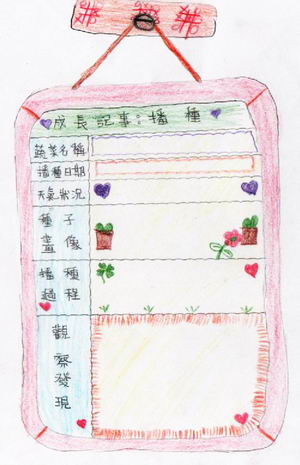 成長記事:播種
蔬菜名稱
播種日期
天氣狀況
種子
畫像
播種
過程
觀
察
發
現